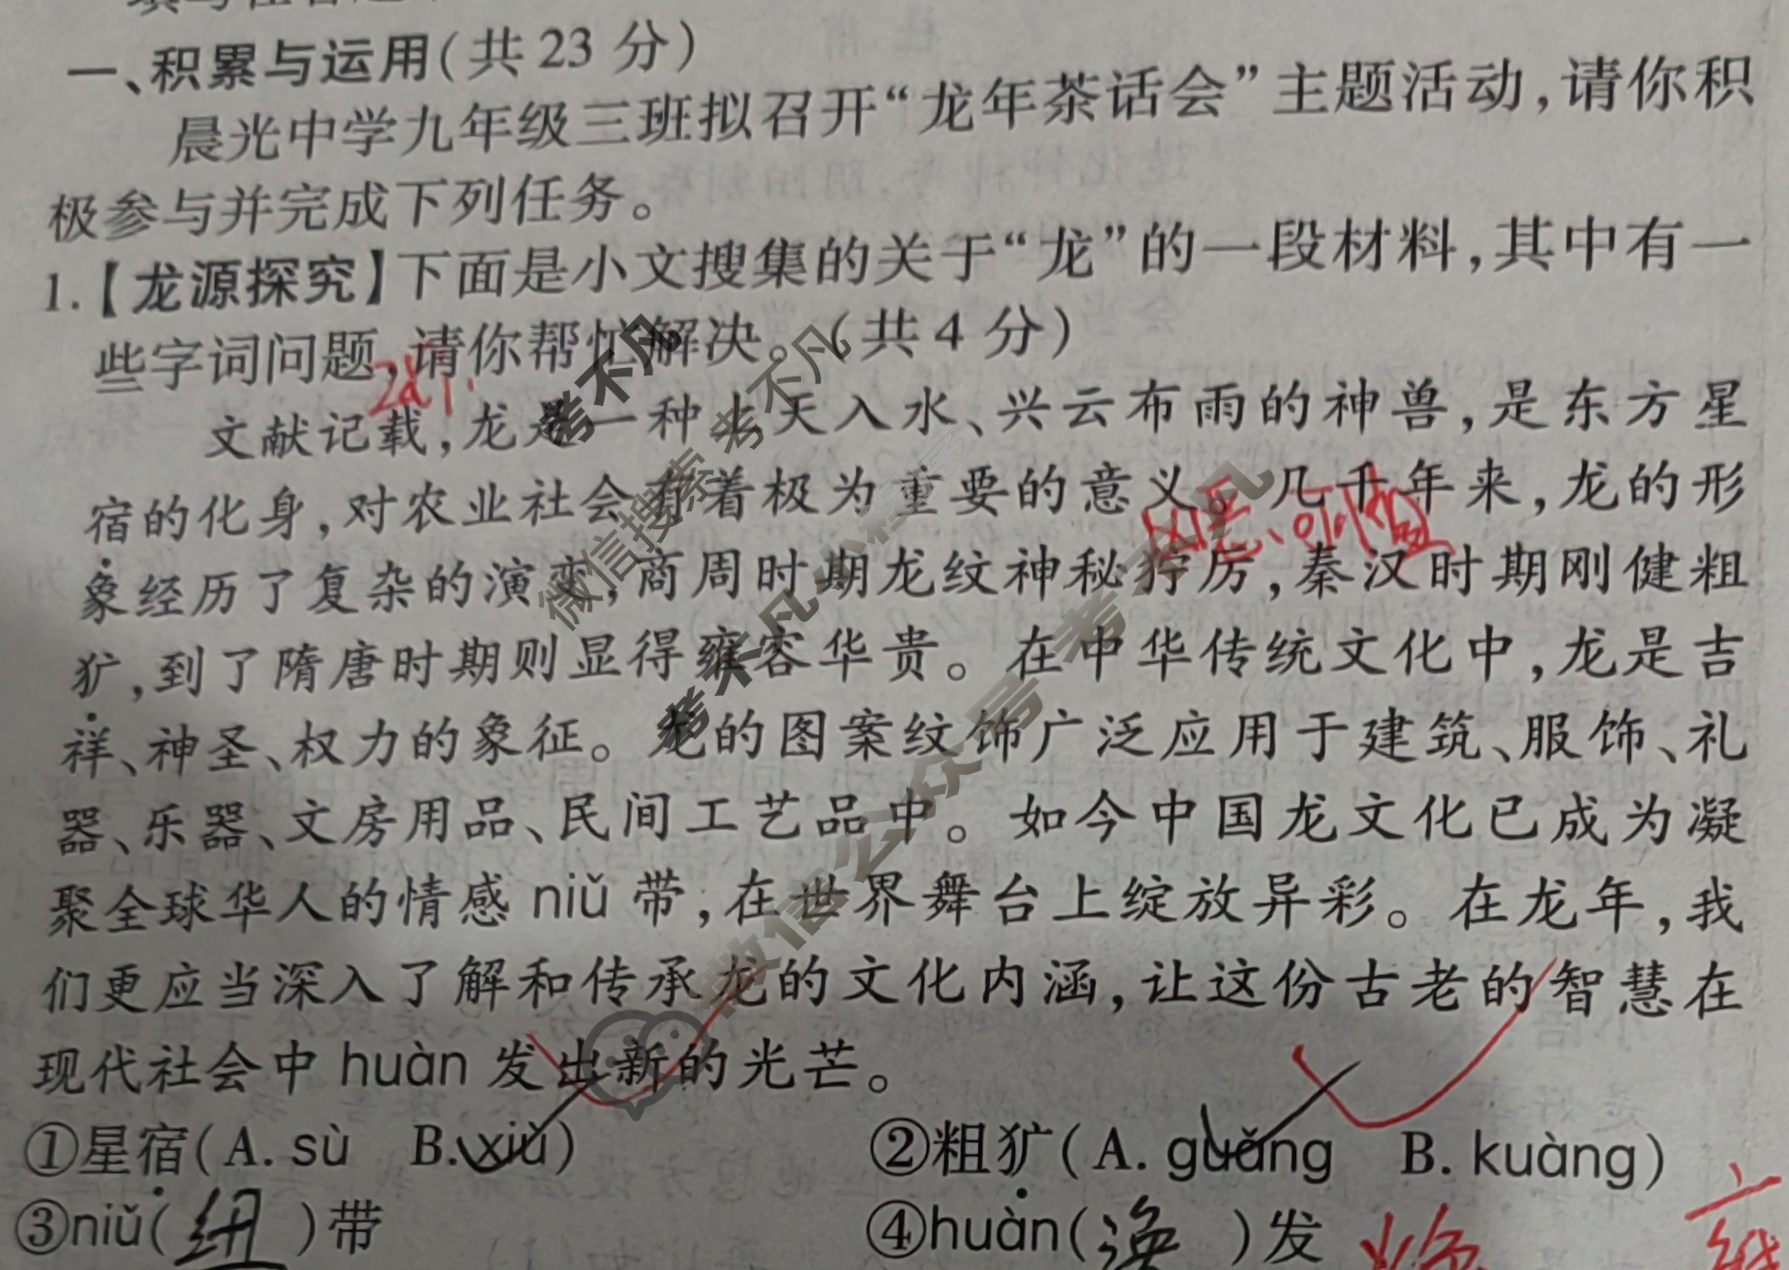 一、积累与运用(共23分)
晨光中学九年级三班拟召开“龙年茶话会”主题活动,请你积
极参与并完成下列任务。
1.【龙源探究】下面是小文搜集的关于“龙”的一段材料,其中有一
些字词问题,请你帮忙解决。(共4分)
文献记载,龙是一种上天入水、兴云布雨的神兽,是东方星
宿的化身,对农业社会有着极为重要的意义。几千年来,龙的形
象经历了复杂的演变,商周时期龙纹神秘狞厉,秦汉时期刚健粗
犷,到了隋唐时期则显得雍容华贵。在中华传统文化中,龙是吉
祥、神圣、权力的象征。龙的图案纹饰广泛应用于建筑、服饰、礼
器、乐器、文房用品、民间工艺品中。如今中国龙文化已成为凝
聚全球华人的情感 niǔ 带,在世界舞台上绽放异彩。在龙年,我
们更应当深入了解和传承龙的文化内涵,让这份古老的智慧在
现代社会中 huàn 发出新的光芒。
①星宿(A. sù B. xiù) ②粗犷(A. guǎng B. kuàng)
③niǔ(纽)带 ④huàn(涣)发 焕
考不凡
微信搜索 考不凡 小程序
考不凡
微信公众号 考不凡